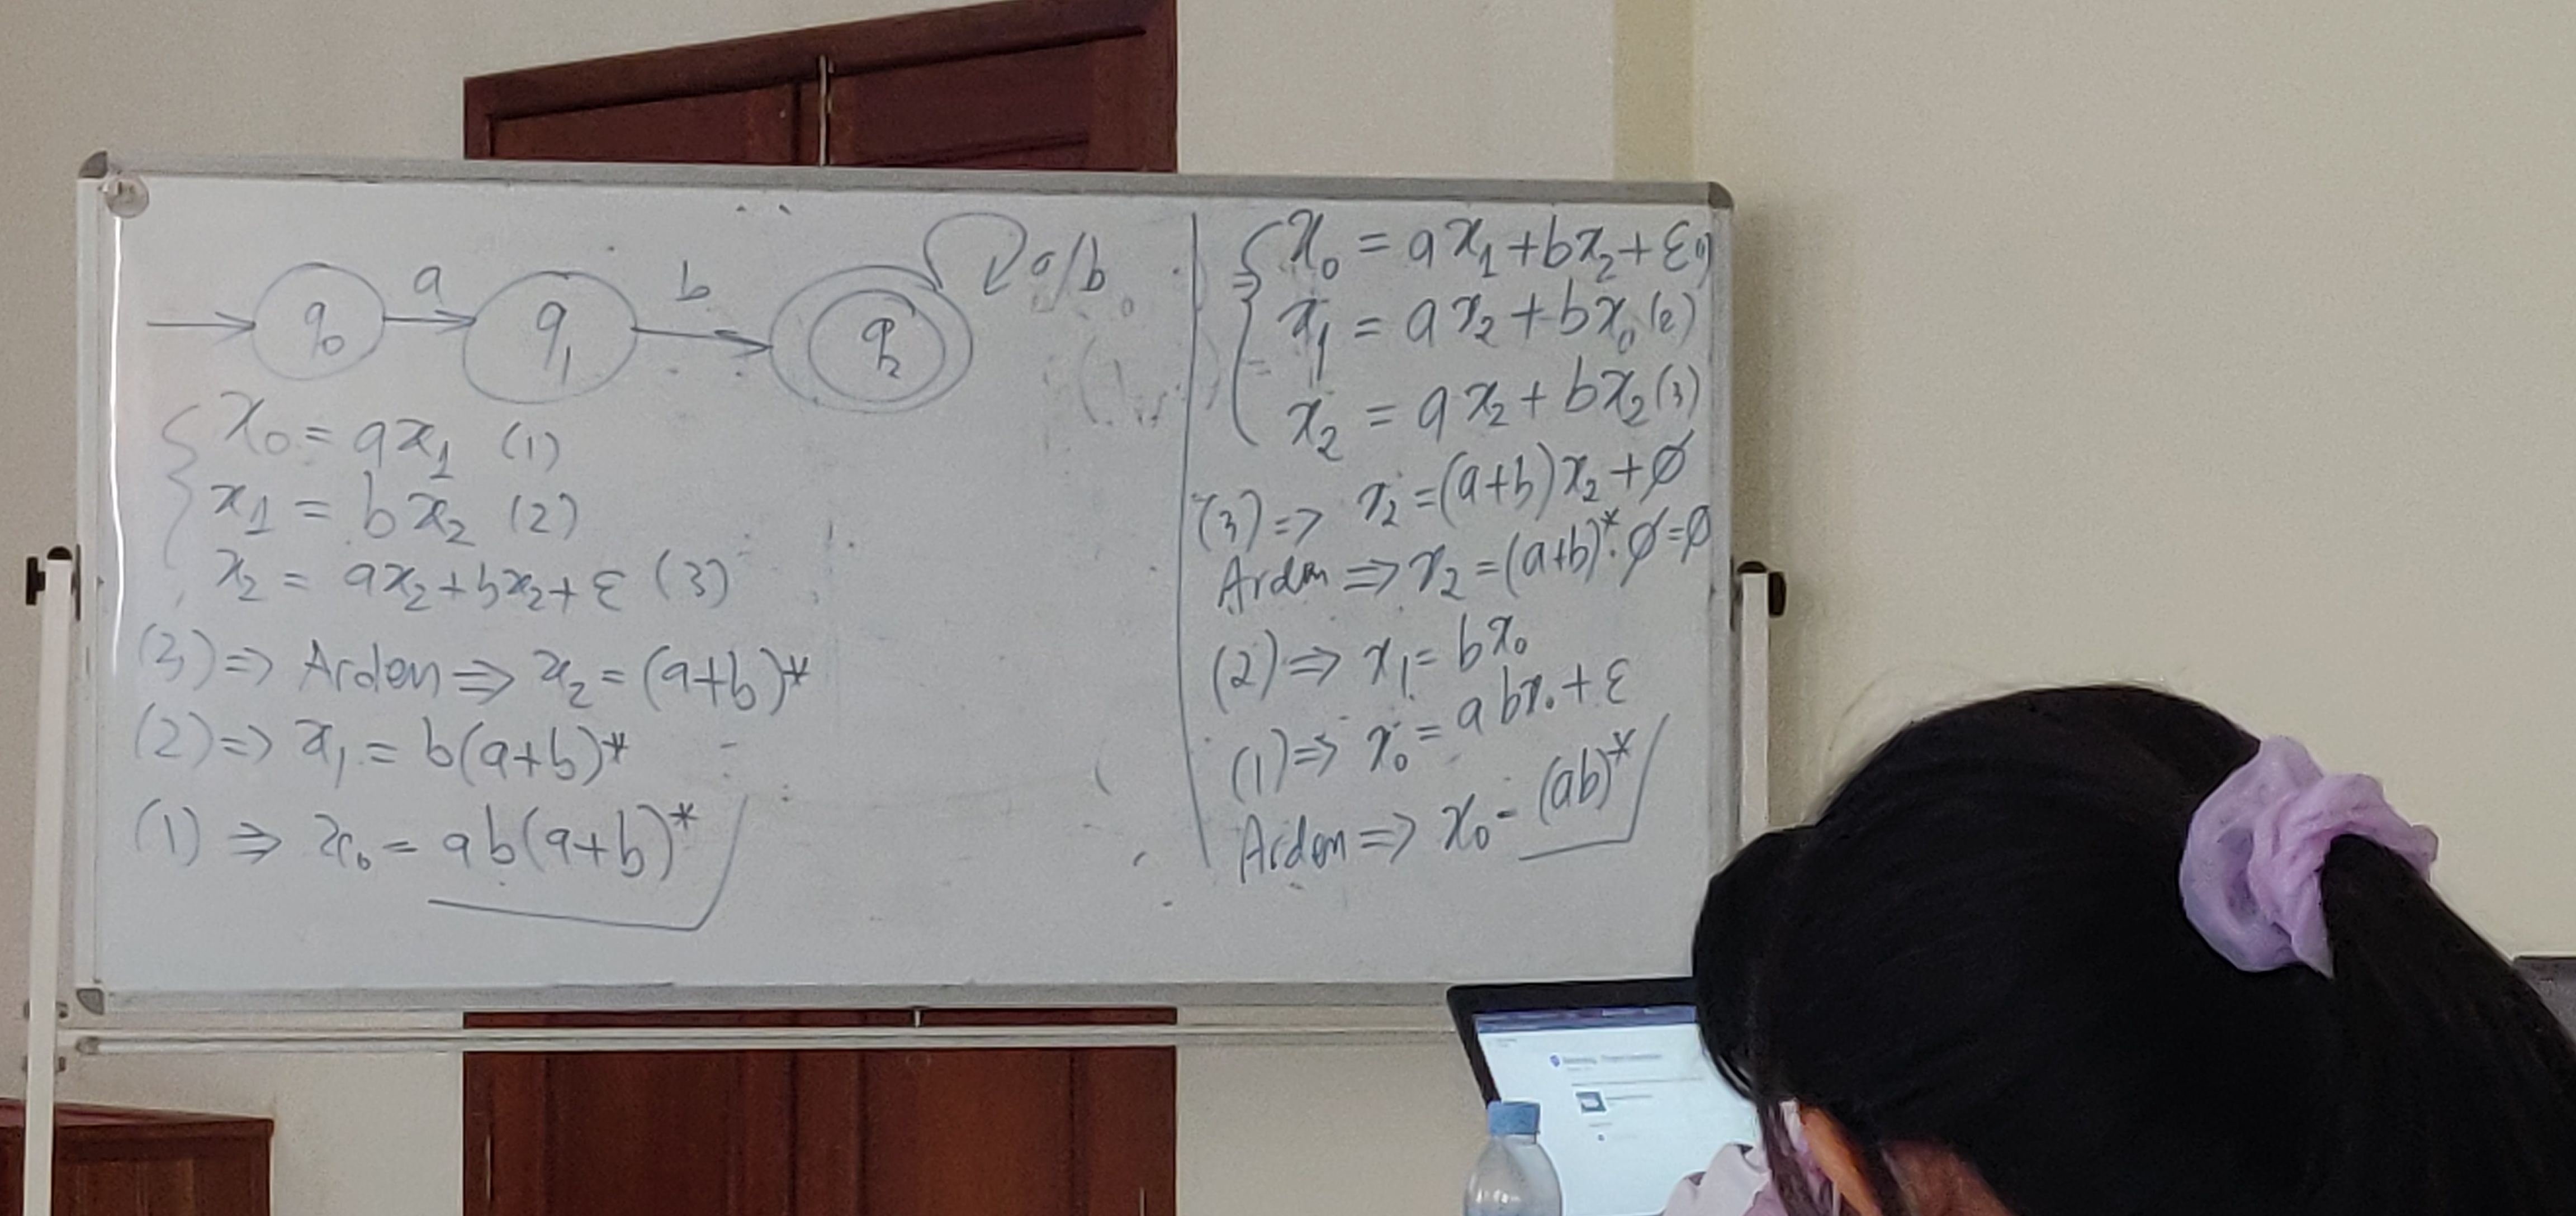 a b a/b
q₀ q₁ q₂
x₀ = ax₁ (1)
x₁ = bx₂ (2)
x₂ = ax₂ + bx₂ + ε (3)
(3) => Arden => x₂ = (a+b)*
(2) => x₁ = b(a+b)*
(1) => x₀ = ab(a+b)*
x₀ = ax₁ + bx₂ + ε
x₁ = ax₂ + bx₀ (2)
x₂ = ax₂ + bx₂ (3)
(3) => x₂ = (a+b)x₂ + ∅
Arden => x₂ = (a+b)*.∅ = ∅
(2) => x₁ = bx₀
(1) => x₀ = abx₀ + ε
Arden => x₀ = (ab)*